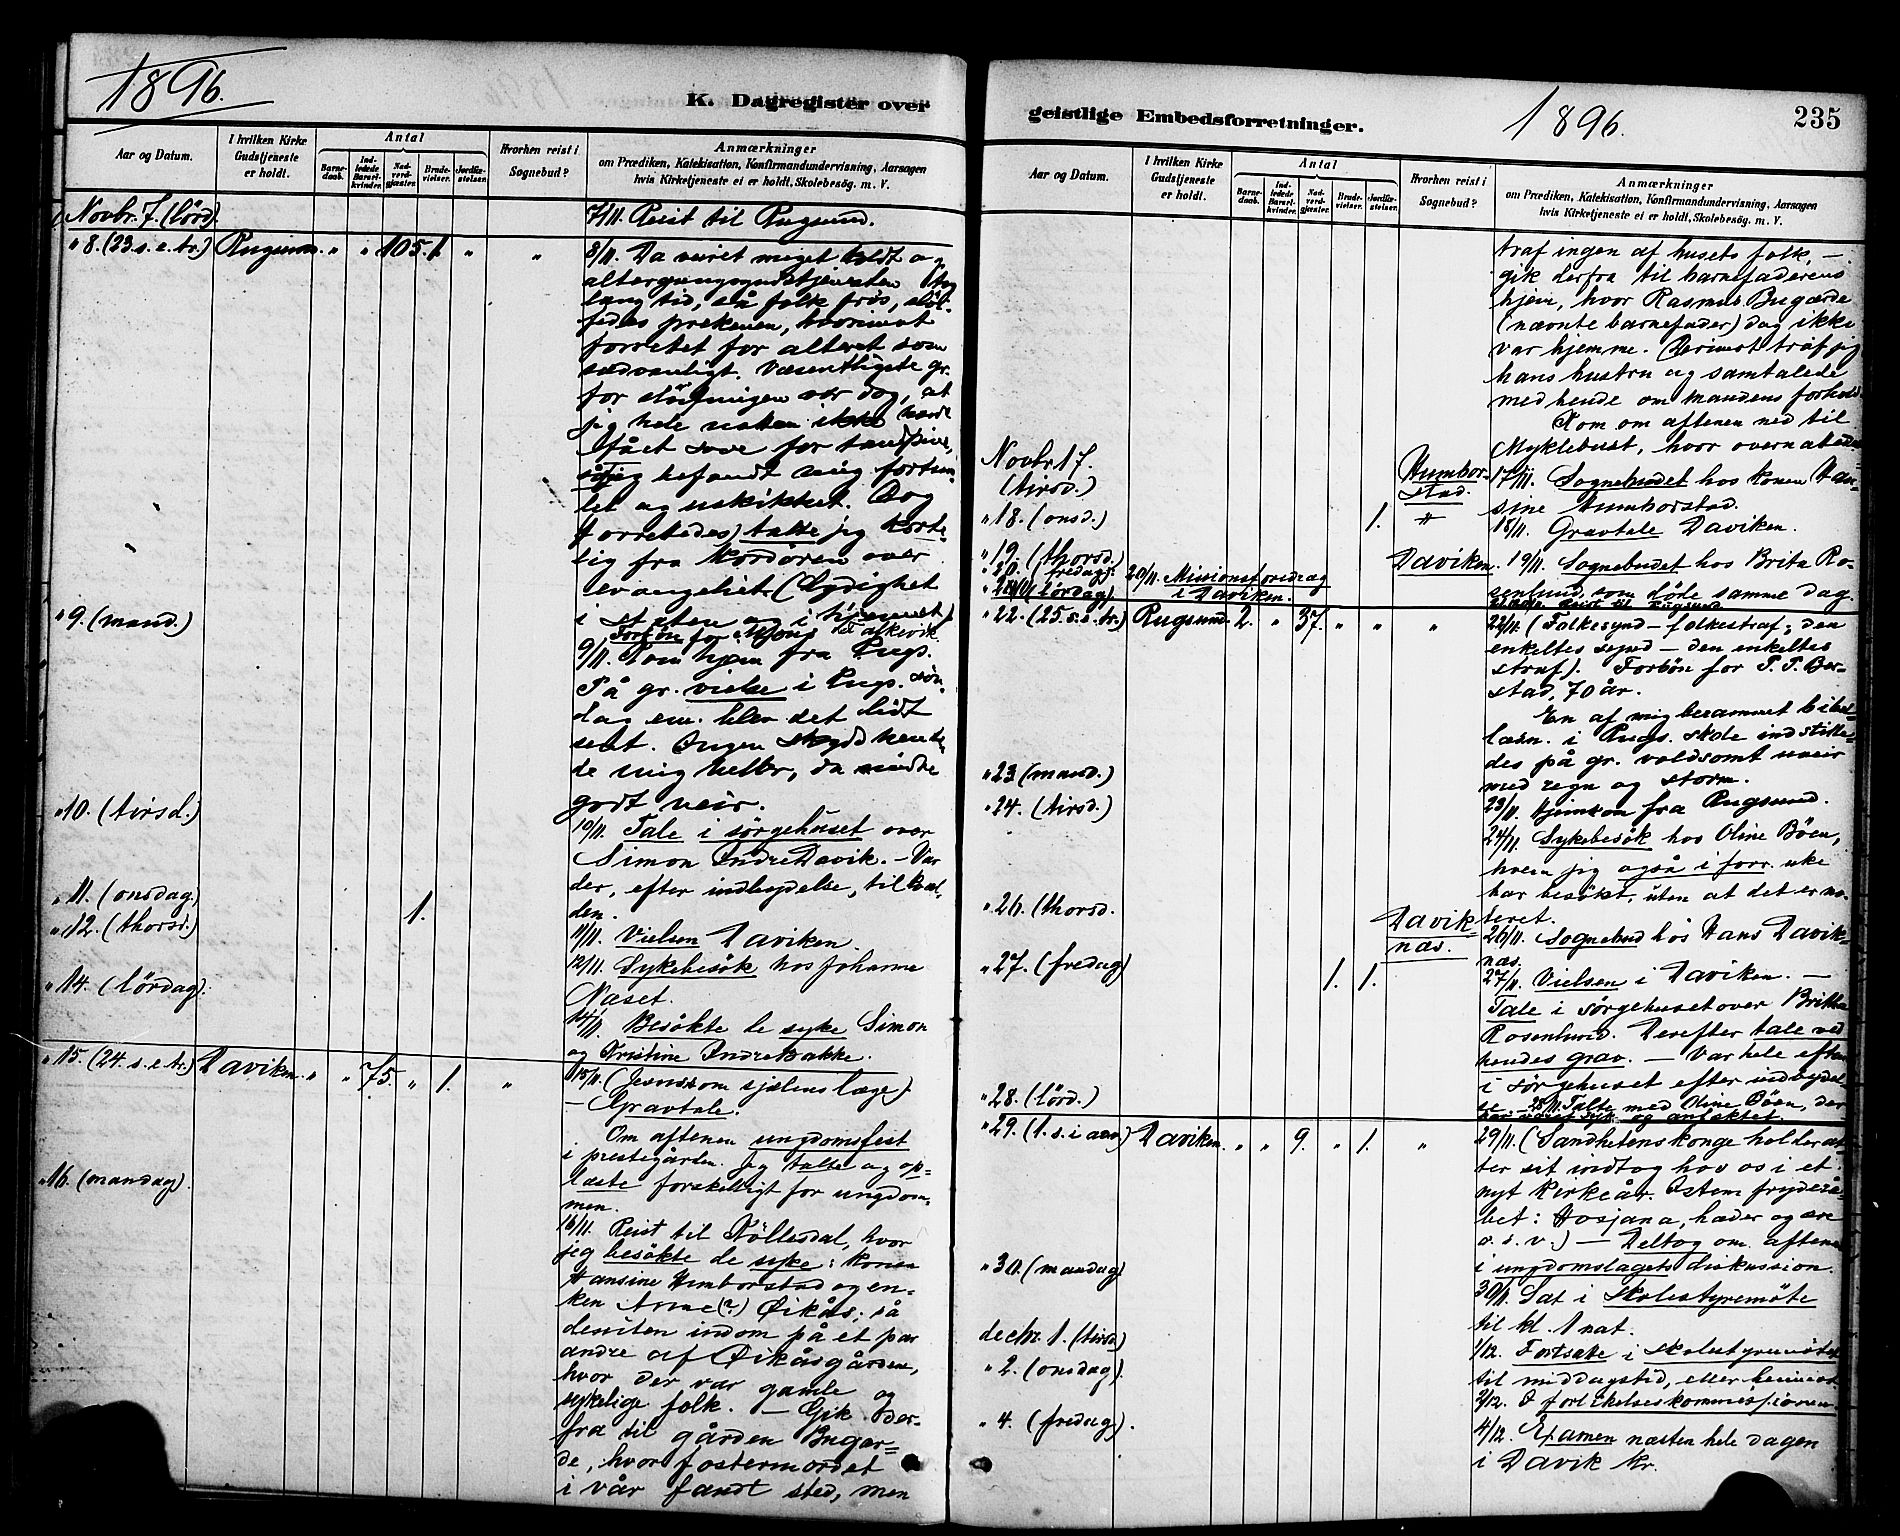 1896.
K. Dagregister over
Aar og Datum.
I hvilken Kirke Gudstjeneste er holdt.
Antal
Barnedaab.
Indledede Barselkvinder.
Nadverdgjæster.
Brudevielser.
Jordfæstelser.
Hvorhen reist i Sognebud?
Anmærkninger
om Prædiken, Katekisation, Konfirmandundervisning, Aarsagen
hvis Kirketjeneste ei er holdt, Skolebesøg. m. V.
Novbr. 7. (lörd).
7/11. Reist til Rugsund.
" 8. (23. s. e. tr.) Rugsund. " " 105. 1. " "
8/11. Da veiret meget koldt og
altergangsgudstjenesten tog
lang tid, så folk frös, slöi-
fedes prekenen, hvorimot
forretet for alteret som
sædvanligt. Væsentligste gr.
for slöifningen var dog, at
jeg hele natten ikke havde
fået sove for tandpine,
så jeg befandt mig fortum-
let og uskikket. Dog
(forrebedes) talte jeg korte-
lig fra kordören over
evangeliet (Lydighet
i staten og i himmelen)
Forbön for
" 9. (mand.)
9/11. Kom hjem fra Rugs.
På gr. vielse i Rugs. sön-
dag em. blev det lidt
sent. Ingen skyds hente-
de mig heller, da
godt veir.
" 10. (tirsd.)
10/11. Tale i sörgehuset over
Simon Indre Davik. – Var
der, efter indbydelse, til kvel-
den.
" 11. (onsdag) 1.
11/11. Vielsen Daviken.
" 12. (thorsd.)
12/11. Sykebesök hos Johanne
Næset.
" 14. (lördag).
14/11. Besökte de syke Simon
og Kristine Indrebakke.
" 15. (24. s. e. tr.) Daviken. " " 75. " 1. "
15/11. (Jesus som sjælens læge)
– Gravtale.
Om aftenen ungdomsfest
i prestegården. Jeg talte og op-
læste forskelligt for ungdom-
men.
" 16. (mandag).
16/11. Reist til Köllesdal, hvor
jeg besökte de syke: konen
Hansine Humborstad og en-
ken Anne (?) Öikås; så
desuten indom på et par
andre af Öikåsgården,
hvor der var gamle og
sykelige folk. – Gik der-
fra til gården Bugar-
de, hvor fostermordet
i vår fandt sted, men
geistlige Embedsforretninger.
1896.
235
Aar og Datum.
I hvilken Kirke Gudstjeneste er holdt.
Antal
Barnedaab.
Indledede Barselkvinder.
Nadverdgjæster.
Brudevielser.
Jordfæstelser.
Hvorhen reist i Sognebud?
Anmærkninger
om Prædiken, Katekisation, Konfirmandundervisning, Aarsagen
hvis Kirketjeneste ei er holdt, Skolebesøg. m. V.
traf ingen af husets folk, –
gik derfra til barnefaderens
hjem, hvor Rasmus Bugarde
(nævnte barnefader) dog ikke
var hjemme. Derimot traf jeg
hans hustru og samtalede
med hende om mandens forhold.
Kom om aftenen ned til
Myklebust, hvor overnattede.
Novbr 17. (tirsd.) Humborstad.
17/11. Sognebudet hos konen Han-
sine Humborstad.
" 18. (onsd.) 1. "
18/11. Gravtale Daviken.
" 19. (thorsd.) Daviken.
19/11. Sognebudet hos Brita Ro-
senlund, som döde samme dag.
" 20. (fredag). 20/11. Missionsforedrag
i Daviken.
" 21. (lördag)
21/11. Reist til Rugsund.
" 22. (25. s. e. tr.) Rugsund. 2. " 37. " " "
22/11. (Folkesynd – folkestraf; den
enkeltes synd – den enkeltes
straf). Forbön for P. P. Ber-
stad, 70 år.
En af mig berammet bibel-
læsn. i Rugs. skole indstille-
des på gr. voldsomt uveir
med regn og storm.
" 23 (mand.)
23/11. Hjemkom fra Rugsund.
" 24. (tirsd.)
24/11. Sykebesök hos Oline Böen,
hvem jeg også i forr. uke
har besökt, uten at det er no-
teret.
" 26. (thorsd. Daviknæs.
26/11. Sognebud hos Hans Davik-
næs.
" 27. (fredag) 1. 1.
27/11. Vielsen i Daviken. –
Tale i sörgehuset over Britha
Rosenlund. Derefter tale ved
hendes grav. – Var hele eftm.
i sörgehuset efter indbydel-
se.
" 28. (lörd.)
28/11. Talte med Oline Böen, der
har været syk og anfæktet.
" 29. (1. s. i adv.) Daviken. " " 9. " 1. "
29/11. (Sandhetens konge holder at-
ter sit indtog hos os i et
nyt kirkeår. Istem fryderå-
bet: Hosjana, hæder og ære
o. s. v.) – Deltog om aftenen
i ungdomslagets diskussion.
" 30. (mandag)
30/11. Sat i skolestyremöte
til kl. 1 nat.
decbr. 1. (tirsd)
1/12. Fortsatte i skolestyremötet
til middagstid, eller henimot.
" 2. (onsdag)
2/12. I forlikelseskommissjonen.
" 4. (fredag).
4/12. Examen næsten hele dagen
i Davik kr.